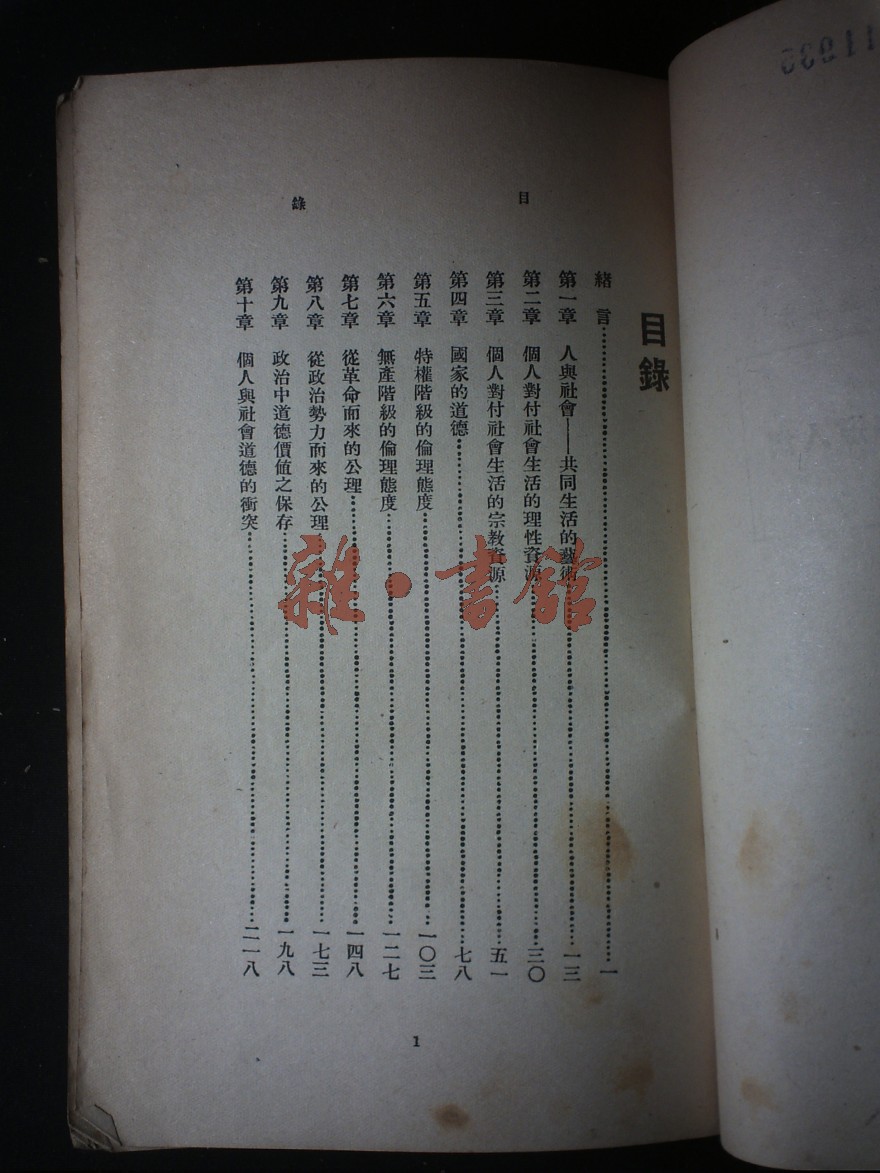 目錄
緒言……一
第一章 人與社會——共同生活的藝術……一三
第二章 個人對付社會生活的理性資源……三〇
第三章 個人對付社會生活的宗教資源……五一
第四章 國家的道德……七八
第五章 特權階級的倫理態度……一〇三
第六章 無產階級的倫理態度……一二七
第七章 從革命而來的公理……一四八
第八章 從政治勢力而來的公理……一七三
第九章 政治中道德價值之保存……一九八
第十章 個人與社會道德的衝突……二一八
目 錄
1
雜·書館